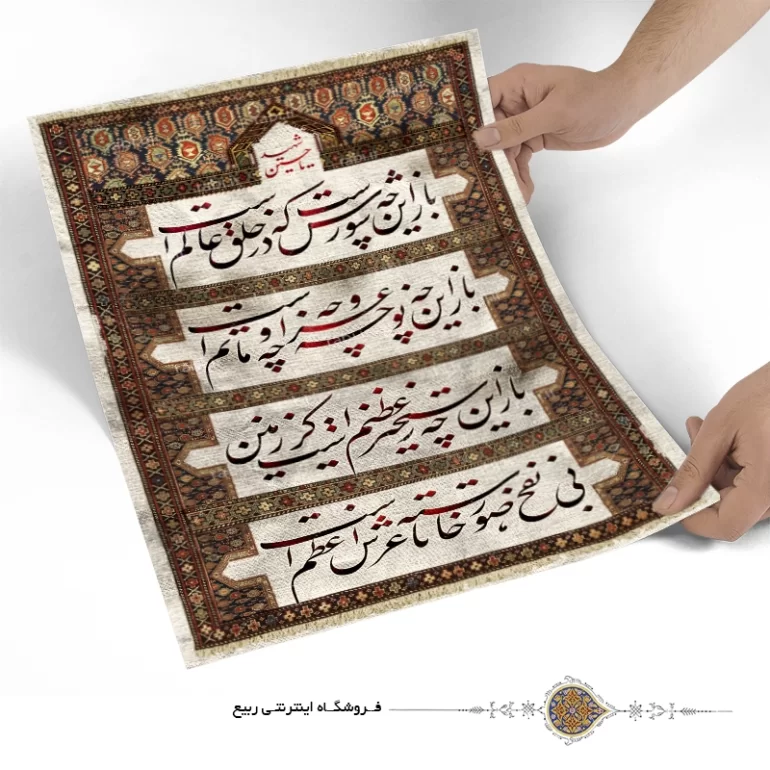 یا حسین شهید
باز این چه شورش است که در خلق عالم است
باز این چه نوحه و چه عزا و چه ماتم است
باز این چه رستخیز عظیم است کز زمین
بی نفخ صور خاسته تا عرش اعظم است
فروشگاه اینترنتی ربیع